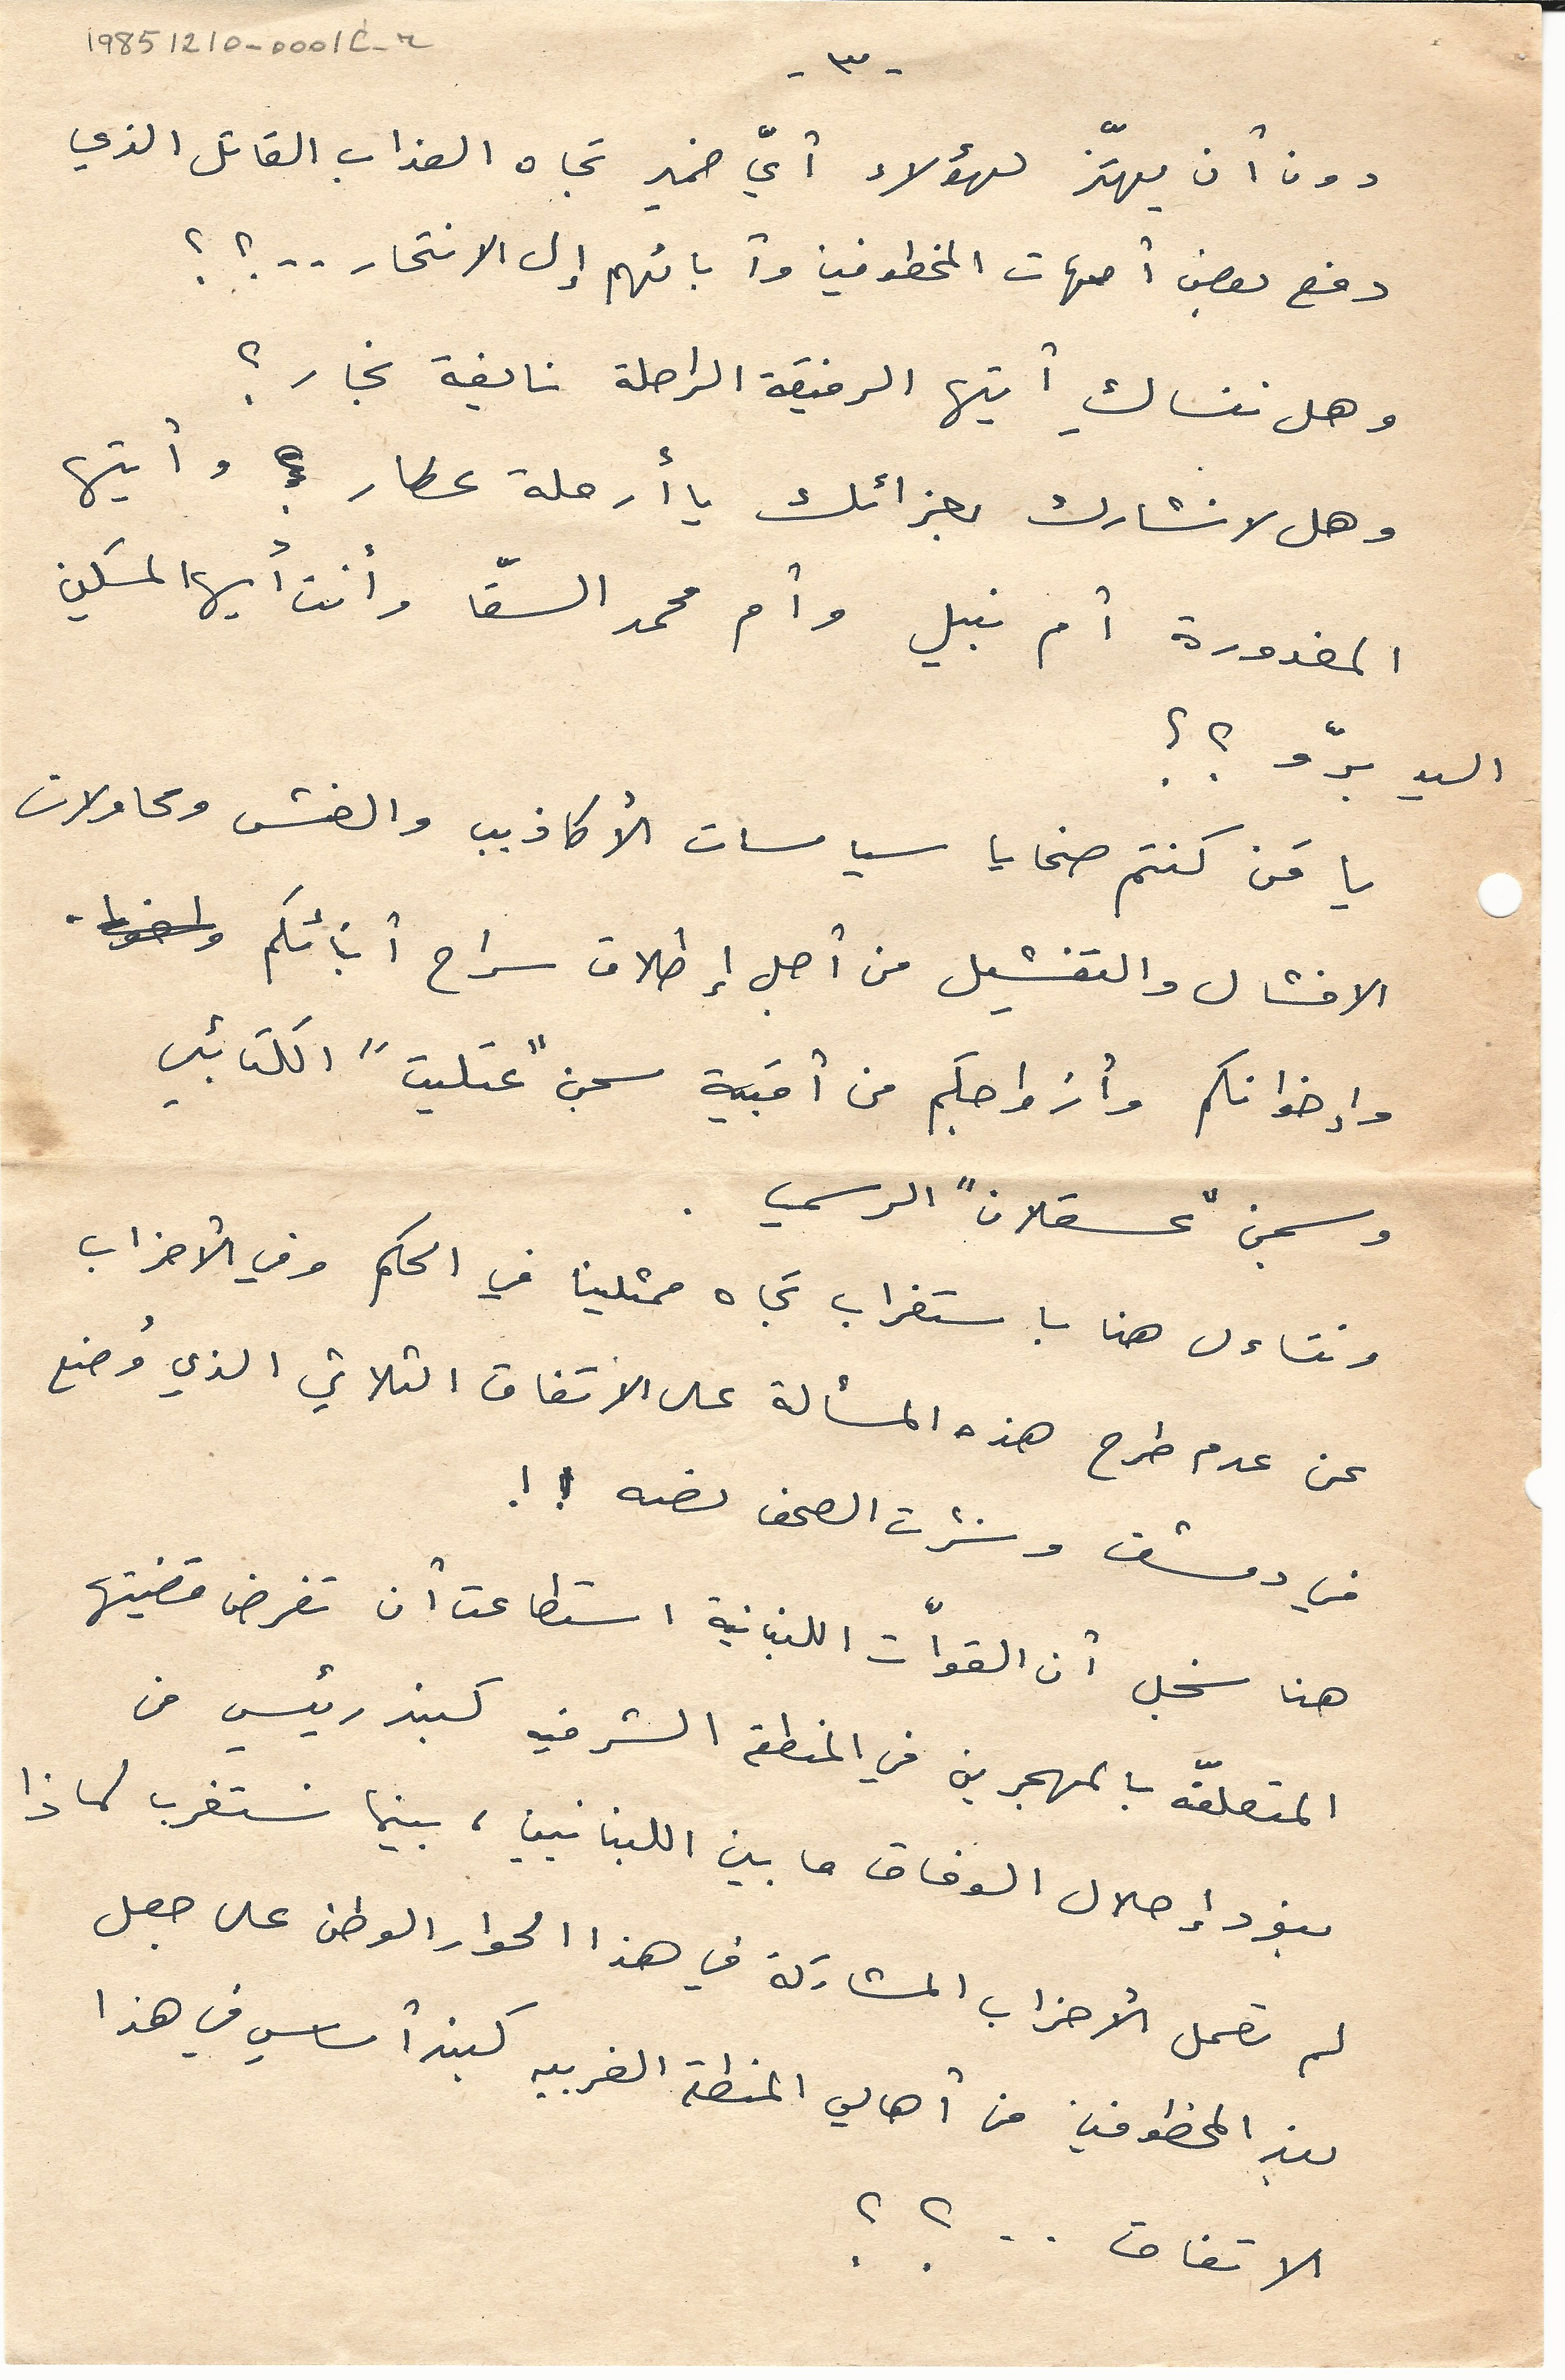 19851210-0001C-r
-٣-
دون أن يهتّز لهؤلاء أيّ ضمير تجاه العذاب القاتل الذي
دفع بعض أمهات المخطوفين وآبائهم إلى الانتحار ..؟؟
وهل ننساكِ أيتها الرفيقة الراحلة نايفة نجار ؟
وهل لا نشارك بعزائك يا أرملة عطار ؟ وأيتها
المغدورة أم نبيل وأم محمد السقّا وأنت أيها المسكين
السيد برّو ؟؟
يا مَن كنتم ضحايا سياسات الأكاذيب والغش ومحاولات
الافشال والتفشيل من أجل إطلاق سراح أبنائكم
وإخوانكم وأزواجكم من أقبية سجن "عتليت" الكتائبي
وسجن "عسقلان" الرسمي .
ونتساءل هنا باستغراب تجاه ممثلينا في الحكم وفي الأحزاب
عن عدم طرح هذه المسألة على الاتفاق الثلاثي الذي وُضع
في دمشق ونشرت الصحف نصه !!
هنا نسجل أن القوّات اللبنانية استطاعت أن تفرض قضيتها
المتعلقّة بالمهجرين في المنطقة الشرقيه كبند رئيسي من
بنود إحلال الوفاق ما بين اللبنانيين ، بينما نستغرب لماذا
لم تعمل الأحزاب المشاركة في هذا الحوار الوطني على جعل
بند المخطوفين من أهالي المنطقة الغربيه كبند أساسي في هذا
الاتفاق .. ؟؟